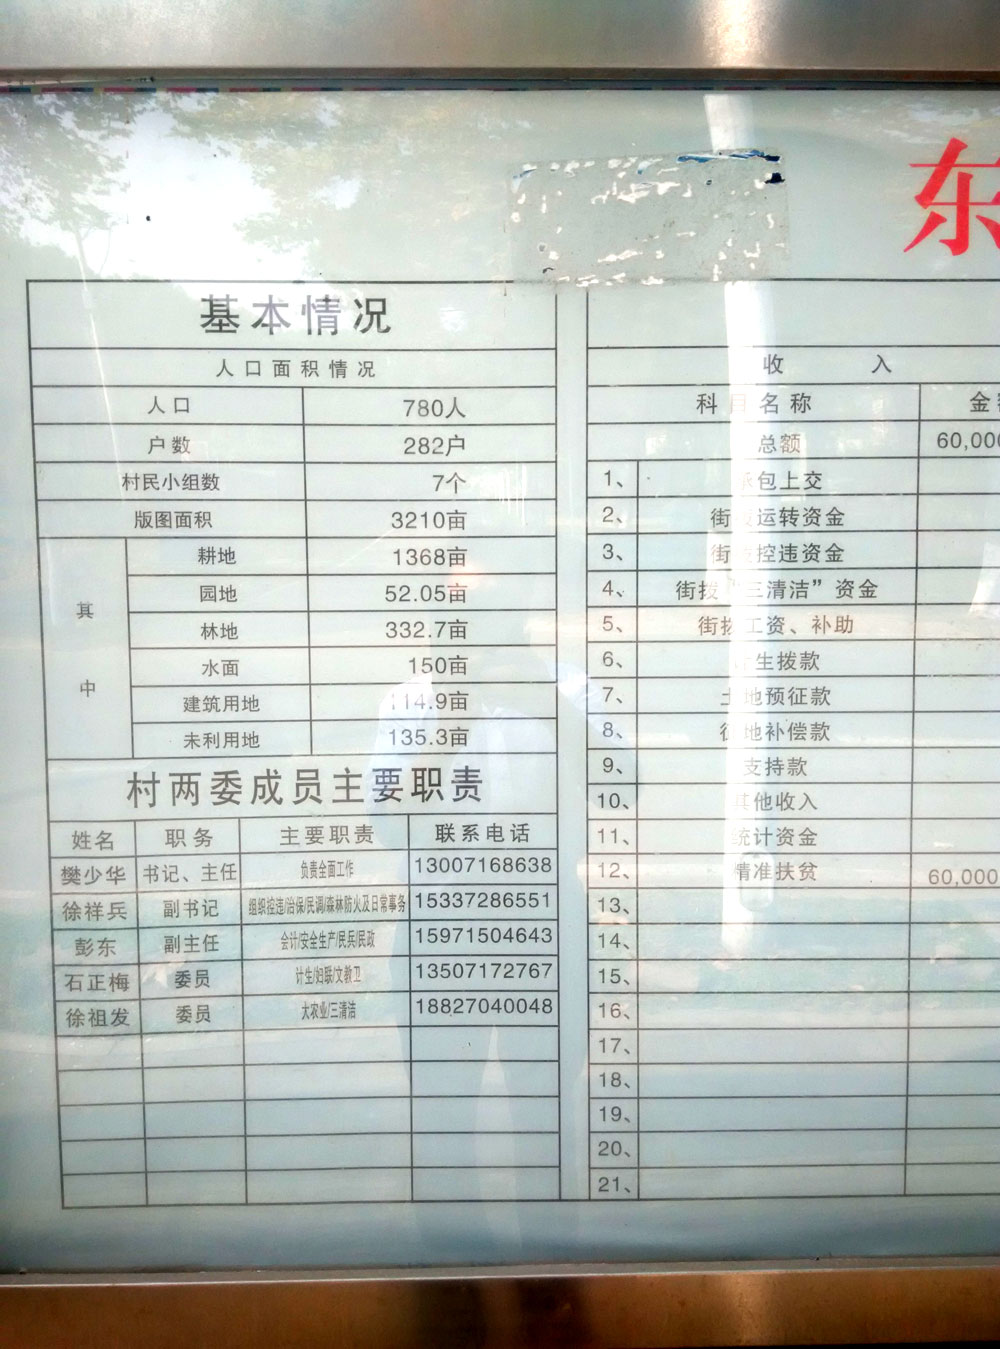 东
基本情况
人口面积情况
人口 780人
户数 282户
村民小组数 7个
版图面积 3210亩
其中
耕地 1368亩
园地 52.05亩
林地 332.7亩
水面 150亩
建筑用地 114.9亩
未利用地 135.3亩
村两委成员主要职责
姓名 职务 主要职责 联系电话
樊少华 书记、主任 负责全面工作 13007168638
徐祥兵 副书记 组织控违/治保/民调/森林防火及日常事务 15337286551
彭东 副主任 会计/安全生产/民兵/民政 15971504643
石正梅 委员 计生/妇联/文教卫 13507172767
徐祖发 委员 大农业/三清洁 18827040048
收入
科目名称 金
总额 60,000
1、 承包上交
2、 街拨运转资金
3、 街拨控违资金
4、 街拨“三清洁”资金
5、 街拨工资、补助
6、 计生拨款
7、 土地预征款
8、 征地补偿款
9、 支持款
10、 其他收入
11、 统计资金
12、 精准扶贫 60,000
13、
14、
15、
16、
17、
18、
19、
20、
21、